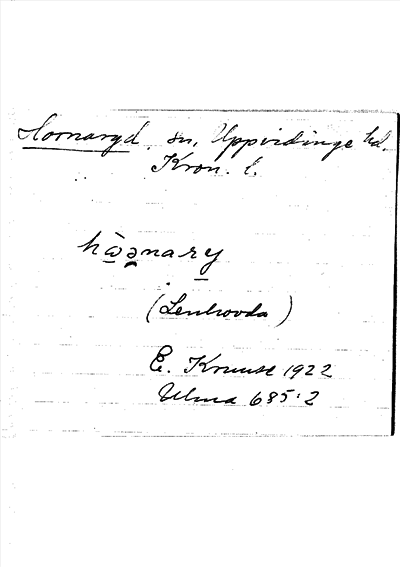 Hornaryd, sn, Uppvidinge hd.
Kron. l.
hὼənary
(Lenhovda)
E. Kruuse 1922
Ulma 685:2